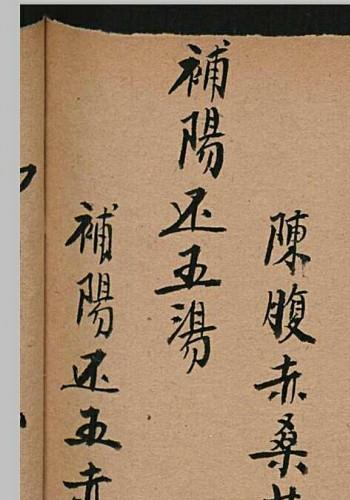 陳腹赤桑
補陽还五湯
補陽还五赤